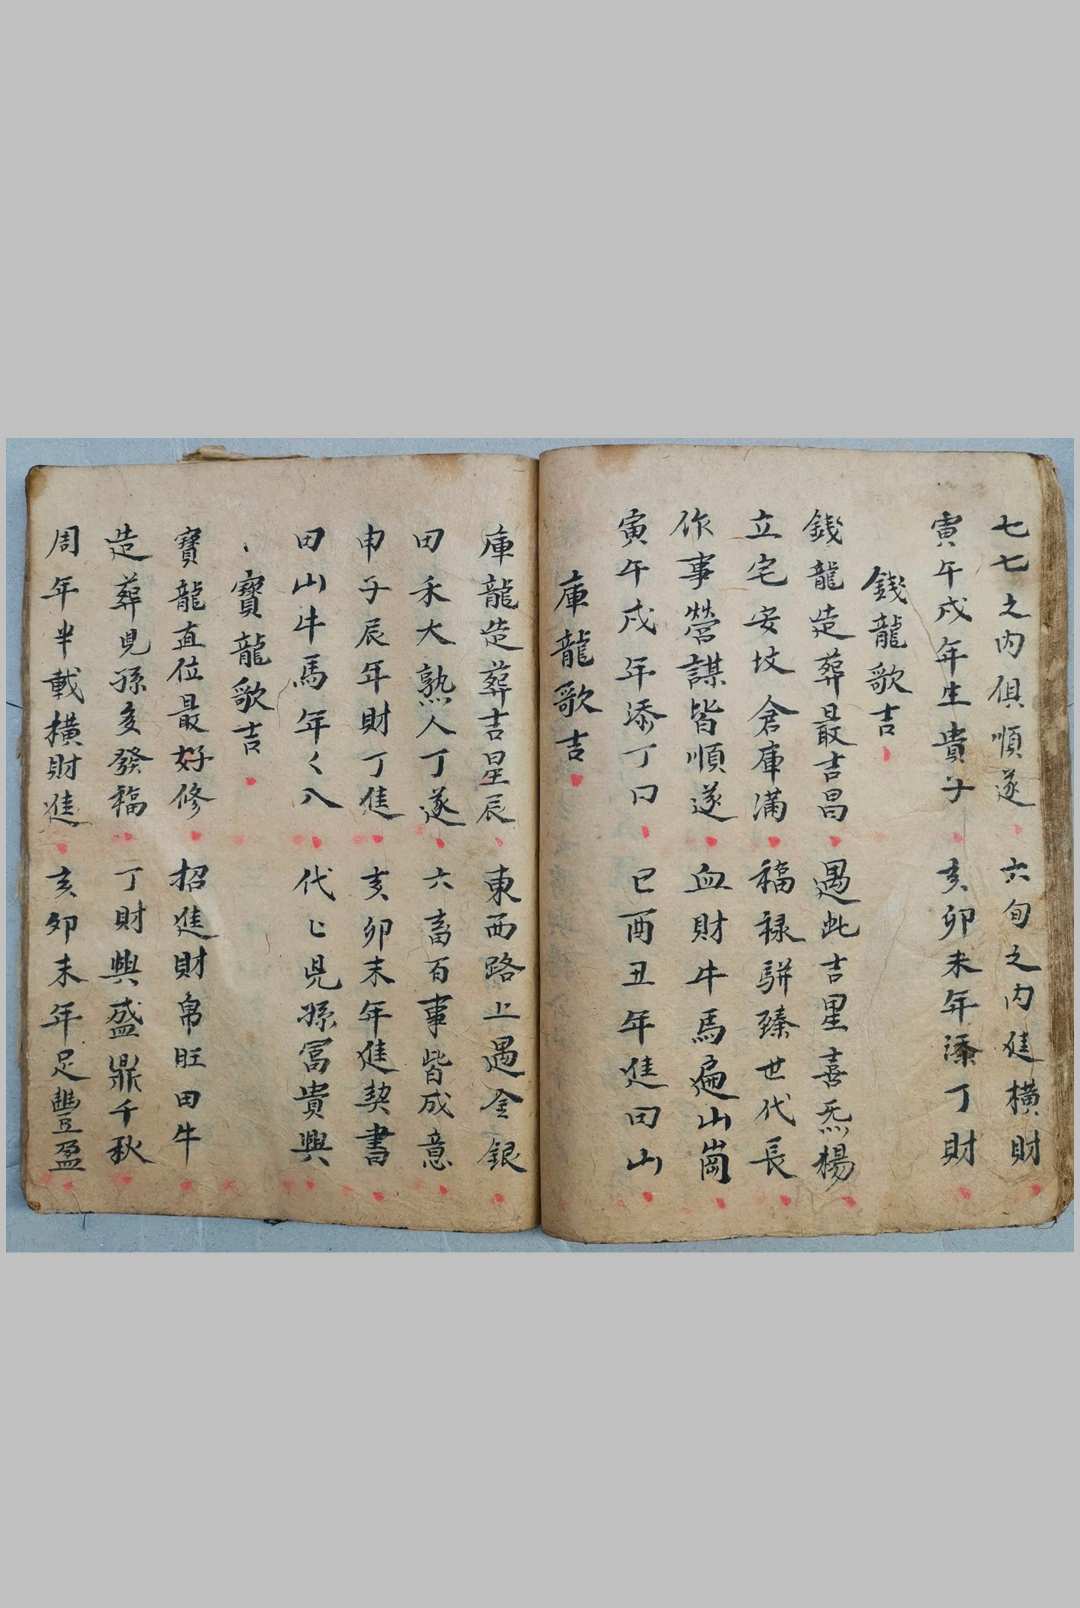 七七之內俱順遂 六旬之內進橫財
寅午戌年生貴子 亥卯未年添丁財
錢龍歌吉
錢龍造葬最吉昌 遇此吉星喜炁楊
立宅安坟倉庫滿 福祿駢臻世代長
作事營謀皆順遂 血財牛馬遍山崗
寅午戌年添丁口 巳酉丑年進田山
庫龍歌吉
庫龍造葬吉星辰 東西路上遇金銀
田禾大熟人丁遂 六畜百事皆成意
申子辰年財丁進 亥卯未年進契書
田山牛馬年々入 代匕児孫冨貴興
寶龍歌吉
寶龍直位最好修 招進財帛旺田牛
造葬児孫多發福 丁財興盛鼎千秋
周年半載橫財進 亥卯未年足豐盈